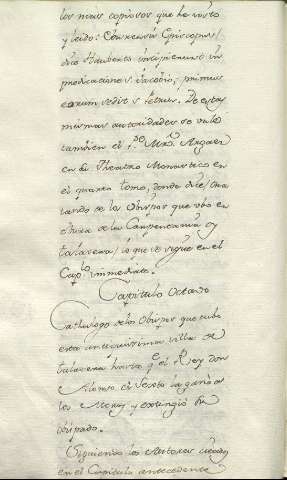 los mas copiosos que he visto
y leidos Conversis Episcopus/
dice Hauberto incipienus in
predicationes Jacobi; primus
eorum sedit Petrus. De estas
mismas autoridades se vale
tambien el P. Mro. Argaez
en su Theatro Monastico en
el quarto tomo, donde dice/tra
tando de los Obispos que ubo en
tierra de la Carpentania y
talavera/ lo que se sigue en el
Caplo. immediate.
Capitulo Octavo
Cathalogo de los Obispos que tubo
esta antiquissima villa de
talavera hasta qe el Rey don
Alonso el Sexto la gano a
los Moros y extingio su
obispado.
Siguiendo los Autores citados
en el Capitulo antecedente